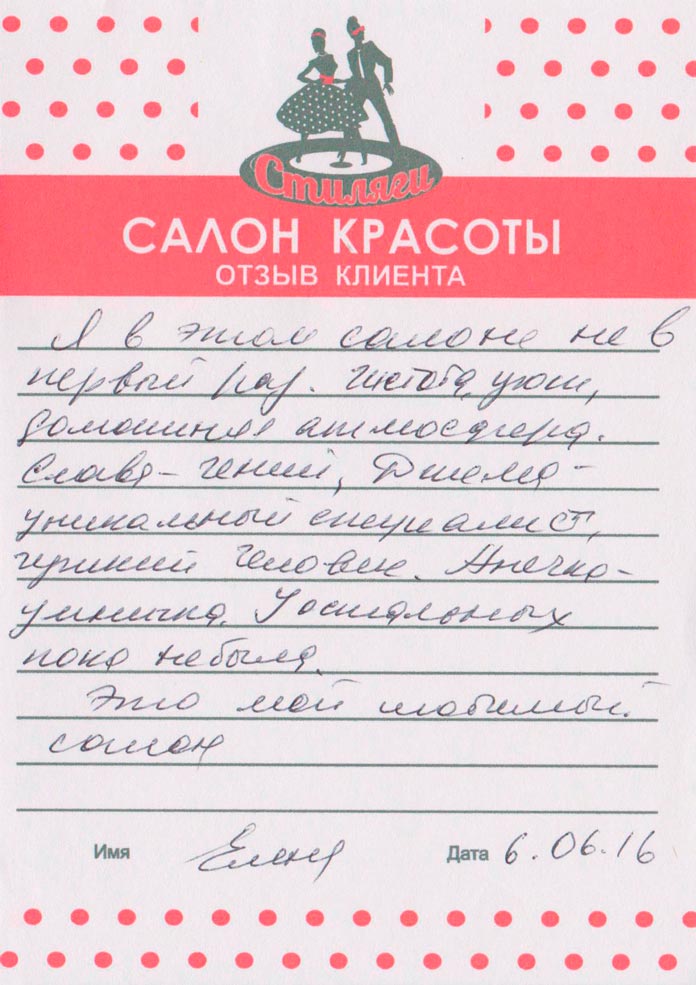 Стиляги
САЛОН КРАСОТЫ
ОТЗЫВ КЛИЕНТА
Я в этом салоне не в
первый раз. Чистота, уют,
домашняя атмосфера.
Слава - гений,
уникальный специалист,
человек. Анечка -
умничка. У остальных
пока не была.
Это мой любимый
салон
Имя Елена Дата 6.06.16